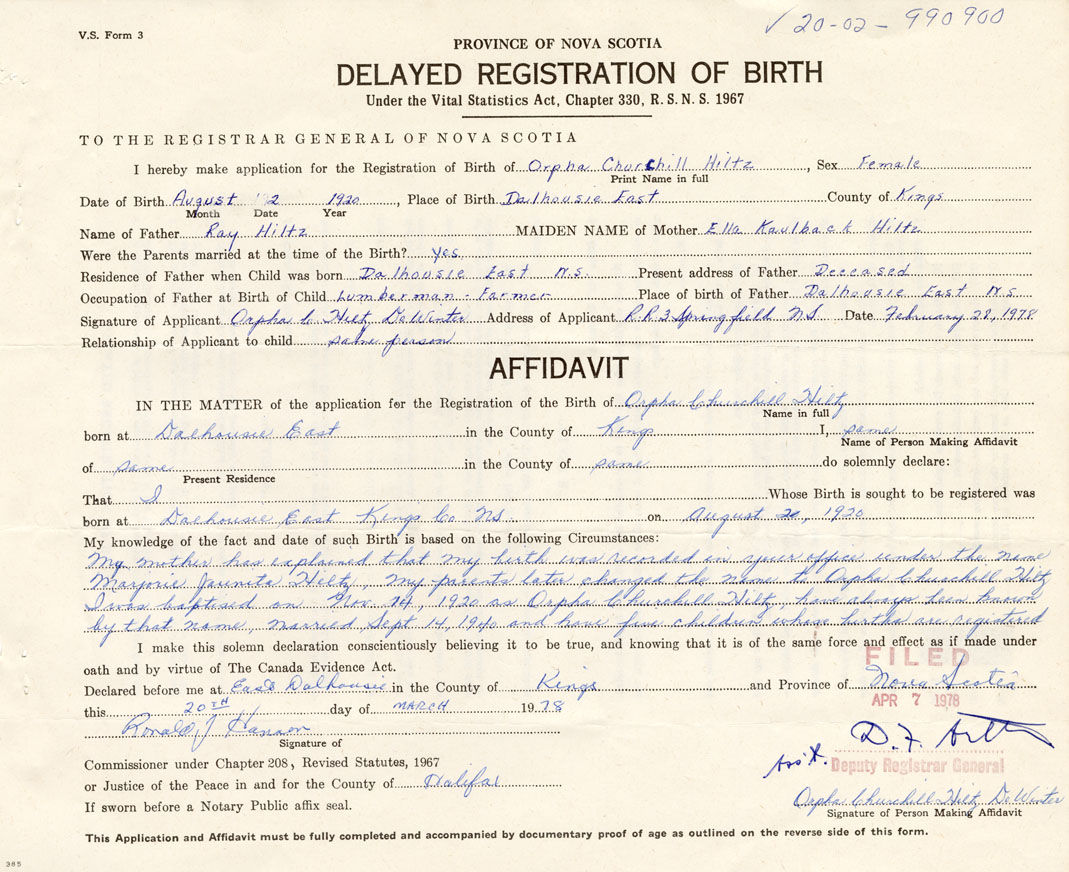 V.S. Form 3
✓ 20-02-990900
PROVINCE OF NOVA SCOTIA
DELAYED REGISTRATION OF BIRTH
Under the Vital Statistics Act, Chapter 330, R. S. N. S. 1967
TO THE REGISTRAR GENERAL OF NOVA SCOTIA
I hereby make application for the Registration of Birth of Orpha Churchill Hiltz, Sex Female
Print Name in full
Date of Birth August 2 1920, Place of Birth Dalhousie East County of Kings
Month Date Year
Name of Father Ray Hiltz MAIDEN NAME of Mother Ella Kaulback Hiltz
Were the Parents married at the time of the Birth? yes
Residence of Father when Child was born Dalhousie East N.S. Present address of Father Deceased
Occupation of Father at Birth of Child Lumberman - Farmer Place of birth of Father Dalhousie East N.S.
Signature of Applicant Orpha C Hiltz DeWinter Address of Applicant R.R.3 Springfield N.S. Date February 28, 1978
Relationship of Applicant to child same person
AFFIDAVIT
IN THE MATTER of the application for the Registration of the Birth of Orpha Churchill Hiltz
Name in full
born at Dalhousie East in the County of Kings I, same
Name of Person Making Affidavit
of same in the County of same do solemnly declare:
Present Residence
That I Whose Birth is sought to be registered was
born at Dalhousie East Kings Co NS. on August , 1920
My knowledge of the fact and date of such Birth is based on the following Circumstances:
My mother has explained that my birth was recorded in your office under the name
Marjorie Jaunita Hiltz, My parents later changed the name to Orpha Churchill Hiltz
I was baptised on Nov. 14, 1920 as Orpha Churchill Hiltz, have always been known
by that name, married Sept 14, 1940 and have five children whose births are registered
I make this solemn declaration conscientiously believing it to be true, and knowing that it is of the same force and effect as if made under
oath and by virtue of The Canada Evidence Act.
FILED
Declared before me at East Dalhousie in the County of Kings and Province of Nova Scotia
this 20TH day of MARCH 1978
APR 7 1978
Ronald J Hanson
Signature of
D. F.
Commissioner under Chapter 208, Revised Statutes, 1967
Ass't. Deputy Registrar General
or Justice of the Peace in and for the County of Halifax
Orpha Churchill Hiltz DeWinter
If sworn before a Notary Public affix seal.
Signature of Person Making Affidavit
This Application and Affidavit must be fully completed and accompanied by documentary proof of age as outlined on the reverse side of this form.
385